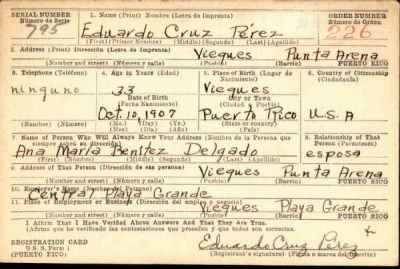 SERIAL NUMBER 1. Name (Print) Nombre (Letra de Imprenta) ORDER NUMBER
Número de Serie Número de Orden
795 Eduardo Cruz Pérez 226
(First) (Primer Nombre) (Middle) (Segundo) (Last) (Apellido)
2. Address (Print) Dirección (Letra de Imprenta)
Vieques Punta Arena
(Street and number) (Número y calle) (Town) (Pueblo) PUERTO RICO
3. Telephone (Teléfono) 4. Age in Years (Edad) 5. Place of Birth (Lugar de Nacimiento) 6. Country of Citizenship (Ciudadanía)
ninguno 33 Vieques
Date of Birth City or Town
(Fecha Nacimiento) (Ciudad) (Pueblo)
Oct. 10, 1907 Puerto Rico U.S.A
(Mo.) (Day) (Yr.) (State or country)
(Mes) (Día) (Año) (Estado o país)
7. Name of Person Who Will Always Know Your Address (Nombre de la Persona que siempre sabrá su dirección) 8. Relationship of That Person (Parentesco)
Ana María Benítez Delgado esposa
(First) (Primero) (Middle) (Segundo) (Last) (Apellido)
9. Address of That Person (Dirección de esa persona)
Vieques Punta Arena
(Street and number) (Número y calle) (Town) (Pueblo) PUERTO RICO
10. Employer's Name (Nombre del Patrono)
Central Playa Grande
11. Place of Employment or Business (Dirección del empleo)
Vieques Playa Grande
(Street and number) (Número y calle) (Town) (Pueblo) PUERTO RICO
I Affirm That I Have Verified Above Answers And That They are True.
(Afirmo que he verificado las contestaciones que preceden y que todas son correctas.
REGISTRATION CARD Eduardo Cruz Pérez
D. S. S. Form 1 (Registrant's signature) (Firma o marca del inscrito)
(PUERTO RICO)